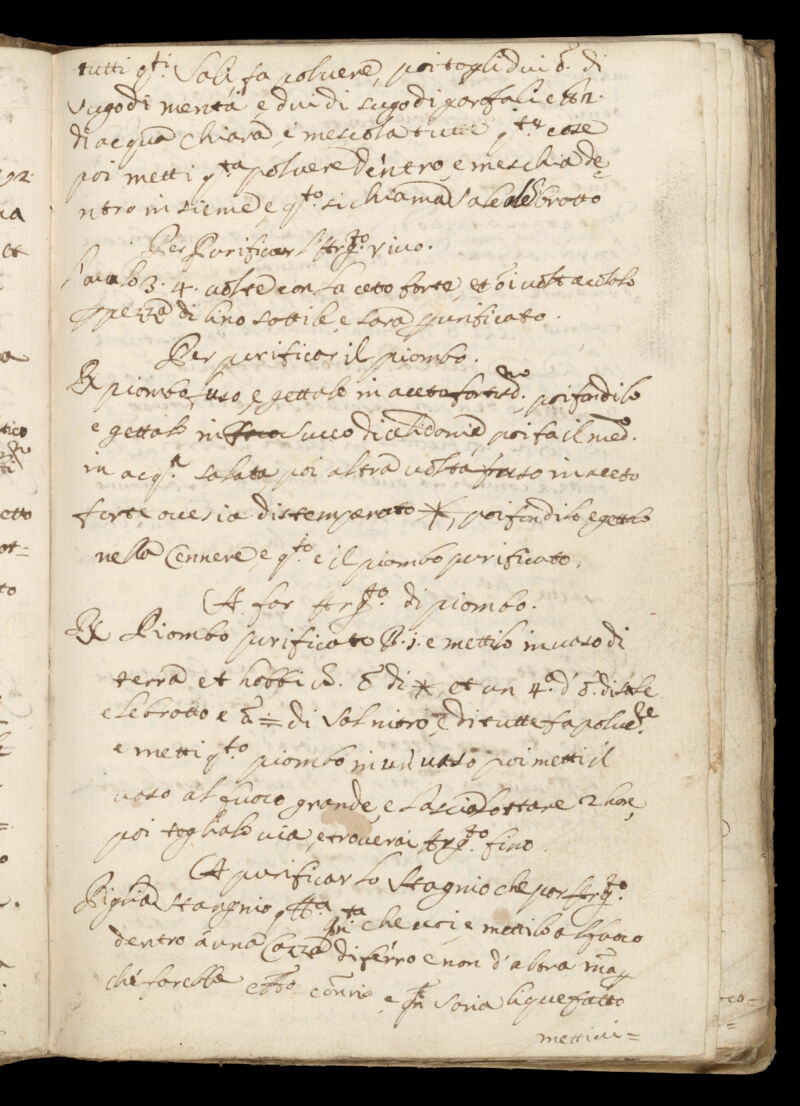 tutti q.ti Sali fa polvere, poi togli dui ℥. di
sugo di menta e dui di sugo di garofali e
di acqua chiara, e mescola tutte q.te cose
poi metti q.ta polvere dentro, e meschia de=
ntro insieme, e q.to si chiama Sale elebrotto
Per Purificar l'Arg.to vivo.
Lavalo 3. 4. volte con l'aceto forte, et
pezza di lino sottile, e sarà purificato.
Per purificar il piombo.
℞ piombo, uso, e gettalo in aceto fortis.mo, poi fondilo
e gettalo in succo di celidonia, poi fa il med.o
in acq.a salata poi altra volta fuso in aceto
forte ove sia distemperato ✶, poi fondilo e gettalo
nella Cennere, e q.to e il piombo purificato.
A far Arg.to di piombo.
℞ Piombo purificato ℔. j. e mettilo in vaso di
terra et habbi ℥ di ✶, et un 4.o d' ℥. di sale
elebrotto e ℥ di Salnitro, e di tutte fa polve.re
e metti q.to piombo in un vaso poi metti il
vaso al fuoco grande, e lascialo stare 2 hore,
poi toglialo via, e troverai Arg.to fino.
A purificar lo Stagnio che par Arg.to
Piglia Stangnio q.ta che voi, e mettilo al fuoco
dentro à una Cazza di ferro e non d'altra
che farebbe e saria liquefatto
mettivi=